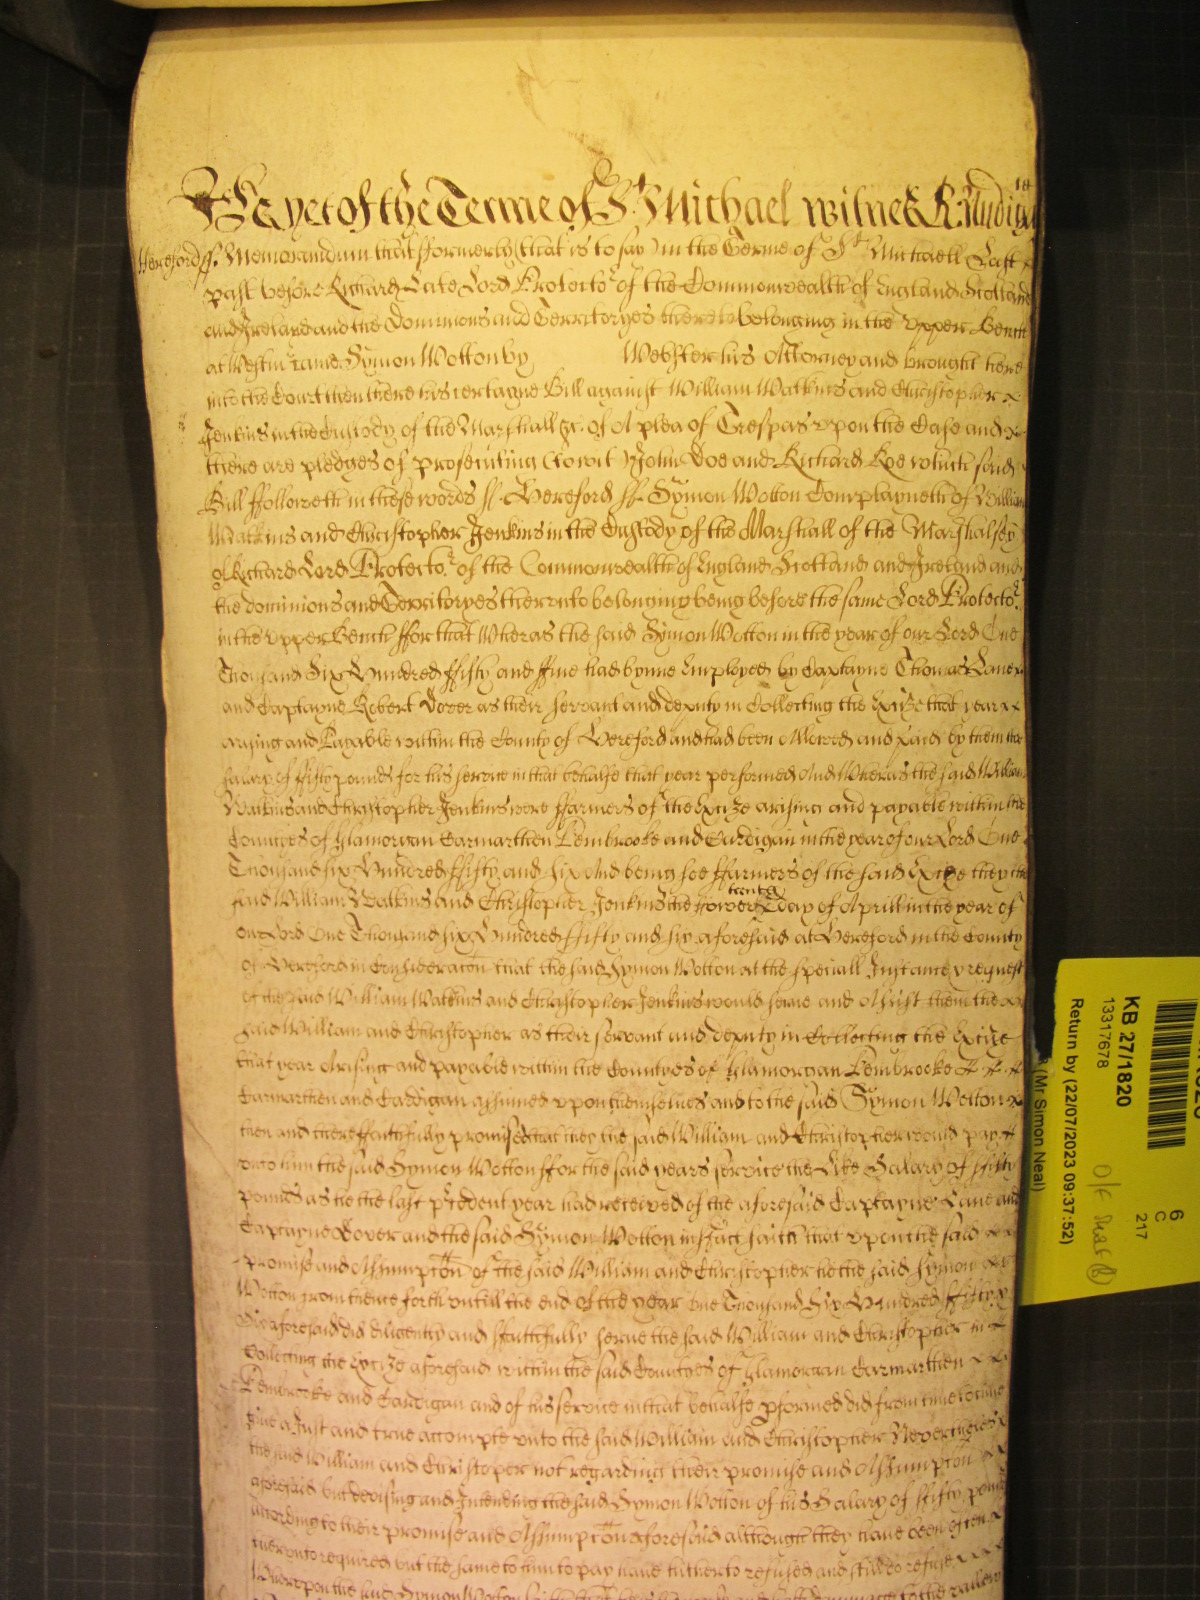 As yet of the Terme of St Michael witnes R: Nudigate
Hereford ss. Memorandum that fformerly (that is to say) in the Terme of St Michaell Last
past before Richard Late Lord Protector of the Commonwealth of England Scotland
and Ireland and the Dominions and Territoryes thereto belonging in the Upper Bench
at Westmr came Symon Wotton by Webster his Attorney and brought here
into the Court then there his certayne Bill against William Watkins and Christopher
Jenkins in the Custody of the Marshall &c. of A plea of Trespas upon the Case and
there are pledges of prosecuting (to wit) John Doe and Richard Roe which said
Bill ffolloweth in these words ss. Hereford ss. Symon Wotton Complayneth of William
Watkins and Christopher Jenkins in the Custody of the Marshall of the Marshalsey
of Richard Lord Protector of the Commonwealth of England Scotland and Ireland and
the dominions and Territoryes thereunto belonging being before the same Lord Protector
in the Upper Bench ffor that Wheras the said Symon Wotton in the year of our Lord One
Thousand Six Hundred ffifty and ffive had bynne Employed by Captayne Thomas Lane
and Captayne Robert Dover as their servant and deputy in Collecting the Excize that year
arising and Payable within the County of Hereford and had been Allowed and paid by them the
salary of ffifty pounds for his service in that behalfe that year performed And Wheras the said William
Watkins and Christopher Jenkins were ffarmers of the Excize arising and payable within the
Countyes of Glamorgan Carmarthen Pembrooke and Cardigan in the year of our Lord One
Thousand six Hundred ffifty and six And being soe ffarmers of the said Excize they the
said William Watkins and Christopher Jenkins the day of Aprill in the year of
our Lord One Thousand six Hundred ffifty and six aforesaid at Hereford in the County
of Hereford in Consideracon that the said Symon Wotton at the speciall Instance & request
of the said William Watkins and Christopher Jenkins would serve and Assist them the
said William and Christopher as their servant and deputy in Collecting the Excize
that year Arising and payable within the Countyes of Glamorgan Pembrooke
Carmarthen and Cardigan assumed upon themselves and to the said Symon Wotton
then and there ffaithfully promised that they the said William and Christopher would pay
unto him the said Symon Wotton ffor the said years service the Like Salary of ffifty
pounds as he the last precedent year had received of the aforesaid Captayne Lane and
Captayne Dover and the said Symon Wotton in ffact saith that upon the said
promise and Assumpcon of the said William and Christopher he the said Symon
Wotton from thence forth untill the end of the year One Thousand Six Hundred ffifty
Six aforesaid did diligently and ffaithfully serve the said William and Christopher in
Collecting the Excize aforesaid within the said Countyes of Glamorgan Carmarthen
Pembrooke and Cardigan and of his service in that behalfe pformed did from time to time
give a Just and true accompte unto the said William and Christopher Neverthelesse
the said William and Christoper not regarding their promise and Assumpcon
aforesaid but devising and Intending the said Symon Wotton of his Salary of ffifty pounds
according to their promise and Assumpcon aforesaid although they have been often
thereunto required but the same to him to pay have hitherto refused and still do refuse
Whereupon the said Symon Wotton saith that to the vallew
KB 27/1820
13317678
Return by (22/07/2023 09:37:52)
(Mr Simon Neal)
6
C
217